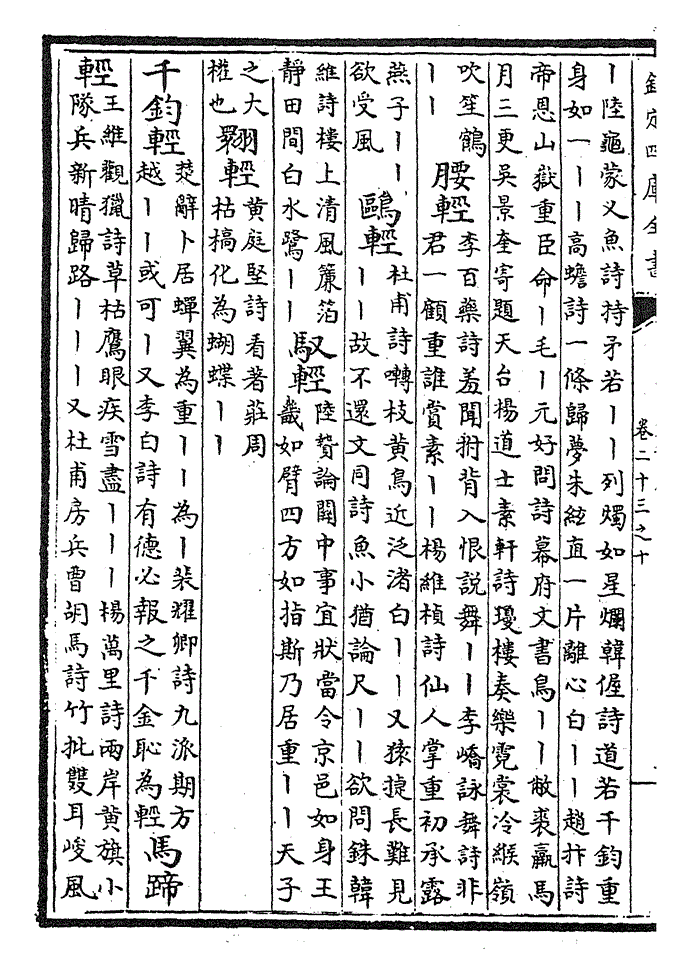 欽定四庫全書
卷二十三之十
丨陸龜蒙乂魚詩持矛若丨丨列燭如星爛韓偓詩道若千鈞重
身如一丨丨高蟾詩一條歸夢朱絃直一片離心白丨丨趙抃詩
帝恩山嶽重臣命丨毛丨元好問詩幕府文書鳥丨丨敝裘羸馬
月三更吳景奎寄題天台楊道士素軒詩瓊樓奏樂霓裳冷緱嶺
吹笙鶴
丨丨
腰輕
李百藥詩羞聞拊背入恨説舞丨丨李嶠詠舞詩非
君一顧重誰賞素丨丨楊維楨詩仙人掌重初承露
燕子丨丨
欲受風
鷗輕
杜甫詩囀枝黄鳥近泛渚白丨丨又猿捷長難見
丨丨故不還文同詩魚小猶論尺丨丨欲問銖韓
維詩樓上清風簾箔
靜田間白水鷺丨丨
馭輕
陸贄論關中事宜狀當令京邑如身王
畿如臂四方如指斯乃居重丨丨天子
之大
權也
翾輕
黄庭堅詩看著莊周
枯槁化為蝴蝶丨丨
千鈞輕
楚辭卜居蟬翼為重丨丨為丨裴耀卿詩九派期方
越丨丨或可丨又李白詩有德必報之千金恥為輕
馬蹄
輕
王維觀獵詩草枯鷹眼疾雪盡丨丨丨楊萬里詩兩岸黄旗小
隊兵新晴歸路丨丨丨又杜甫房兵曹胡馬詩竹批雙耳峻風